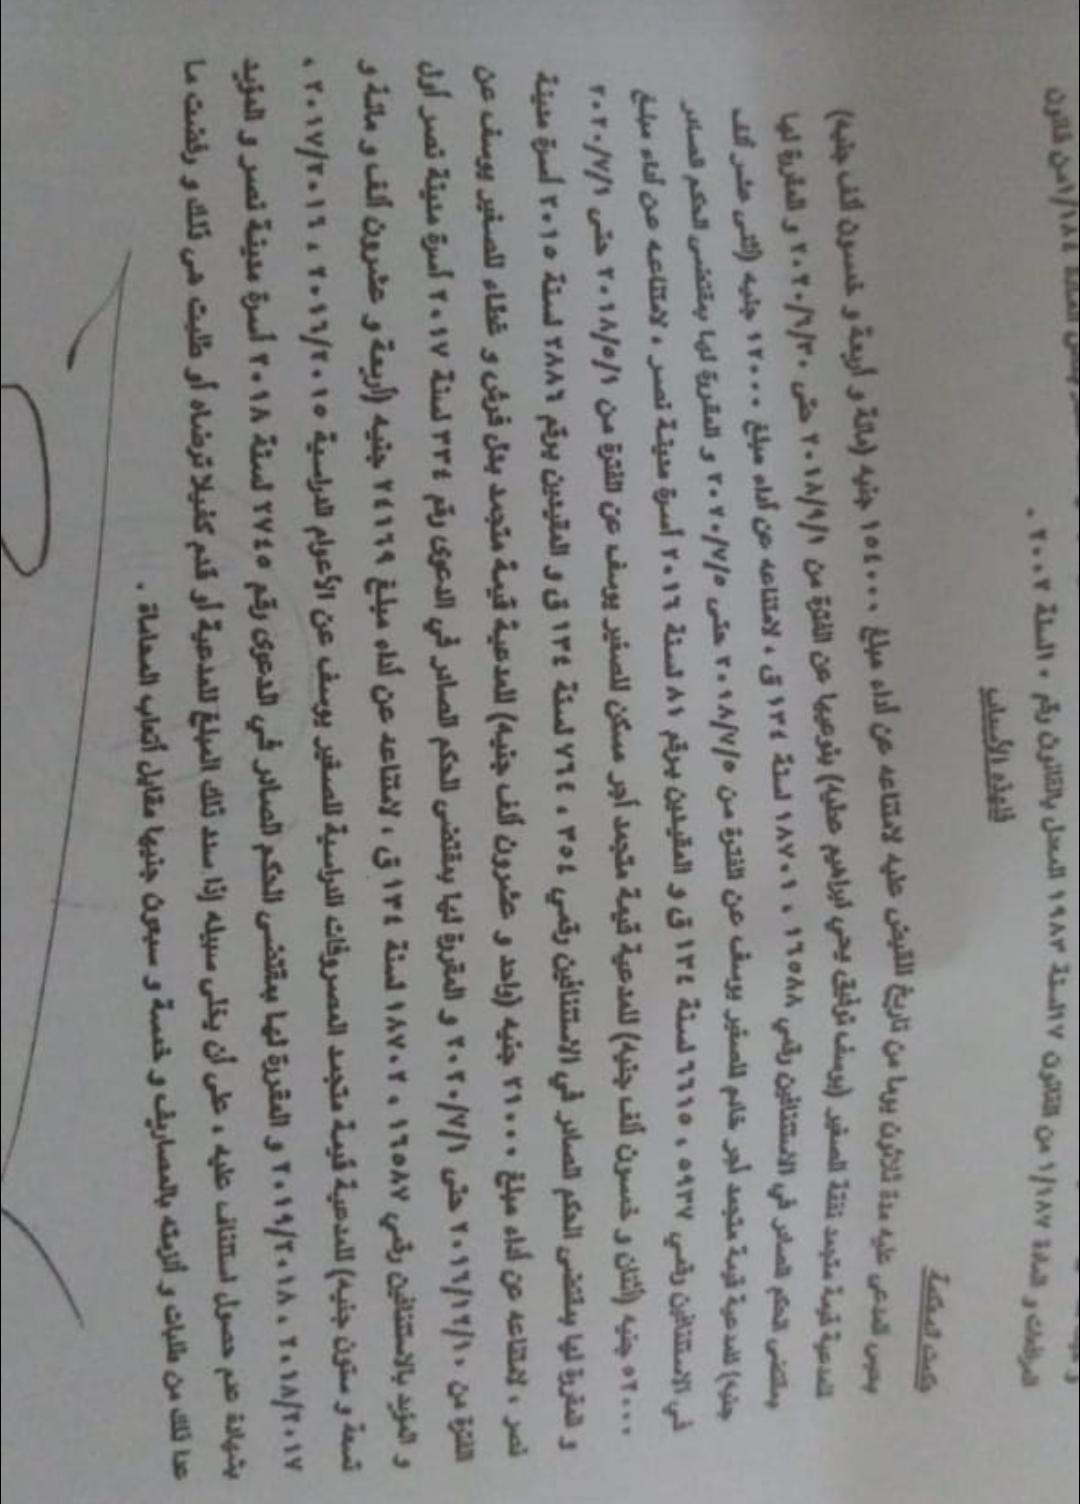 المادة ١/١٨٤ من قانون
المرافعات و المادة ١/١٨٧ من القانون ١٧ لسنة ١٩٨٣ المعدل بالقانون رقم ١٠ لسنة ٢٠٠٢ .
فلهذه الأسباب
حكمت المحكمة
بحبس المدعى عليه مدة ثلاثون يوما من تاريخ القبض عليه لامتناعه عن أداء مبلغ ١٥٤٠٠٠ جنيه (مائة و أربعة و خمسون ألف جنيه)
للمدعية قيمة متجمد نفقة الصغير (يوسف توفيق يحي ابراهيم عطيه) بنوعيها عن الفترة من ٢٠١٨/٩/١ حتى ٢٠٢٠/٦/٣٠ و المقررة لها
بمقتضى الحكم الصادر في الاستئنافين رقمي ١٦٥٨٨ ، ١٨٧٠١ لسنة ١٣٤ ق ، لامتناعه عن أداء مبلغ ١٢٠٠٠ جنيه (اثنى عشر ألف
جنيه) للمدعية قيمة متجمد أجر خادم للصغير يوسف عن الفترة من ٢٠١٨/٧/٥ حتى ٢٠٢٠/٧/٥ و المقررة لها بمقتضى الحكم الصادر
في الاستئنافين رقمي ٥٩٣٧ ، ٦٦١٥ لسنة ١٣٤ ق و المقيدين برقم ٨١ لسنة ٢٠١٦ أسرة مدينة نصر ، لامتناعه عن أداء مبلغ
٥٢٠٠٠ جنيه (اثنان و خمسون ألف جنيه) للمدعية قيمة متجمد أجر مسكن للصغير يوسف عن الفترة من ٢٠١٨/٥/١ حتى ٢٠٢٠/٧/١
و المقررة لها بمقتضى الحكم الصادر في الاستئنافين رقمي ٣٥٤ ، ٧٦٤ لسنة ١٣٤ ق و المقيدين برقم ٢٨٨٦ لسنة ٢٠١٥ أسرة مدينة
نصر ، لامتناعه عن أداء مبلغ ٢١٠٠٠ جنيه (واحد و عشرون ألف جنيه) للمدعية قيمة متجمد بدل فرش و غطاء للصغير يوسف عن
الفترة من ٢٠١٦/١٢/١٠ حتى ٢٠٢٠/٧/١ و المقررة لها بمقتضى الحكم الصادر في الدعوى رقم ٣٣٤ لسنة ٢٠١٧ أسرة مدينة نصر أول
و المؤيد بالاستئنافين رقمي ١٦٥٨٧ ، ١٨٧٠٢ لسنة ١٣٤ ق ، لامتناعه عن أداء مبلغ ٢٤١٦٩ جنيه (أربعة و عشرون ألف و مائة و
تسعة و ستون جنيه) للمدعية قيمة متجمد المصروفات الدراسية للصغير يوسف عن الأعوام الدراسية ٢٠١٦/٢٠١٥ ، ٢٠١٧/٢٠١٦ ،
٢٠١٨/٢٠١٧ ، ٢٠١٩/٢٠١٨ و المقررة لها بمقتضى الحكم الصادر في الدعوى رقم ٢٧٤٥ لسنة ٢٠١٨ أسرة مدينة نصر و المؤيد
بشهادة عدم حصول استئناف عليه ، على أن يخلى سبيله إذا سدد ذلك المبلغ للمدعية أو قدم كفيلا ترضاه أو طلبت هي ذلك و رفضت ما
عدا ذلك من طلبات و ألزمته بالمصاريف و خمسة و سبعون جنيها مقابل أتعاب المحاماة .